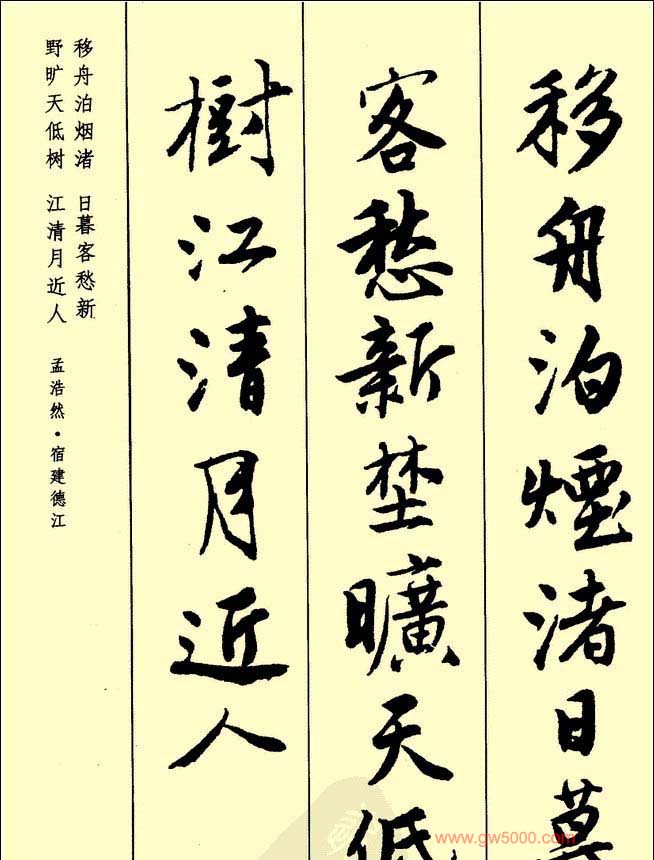 移舟泊煙渚日暮
客愁新埜曠天低
樹江清月近人
移舟泊烟渚 日暮客愁新
野旷天低树 江清月近人
孟浩然·宿建德江
www.gw5000.com